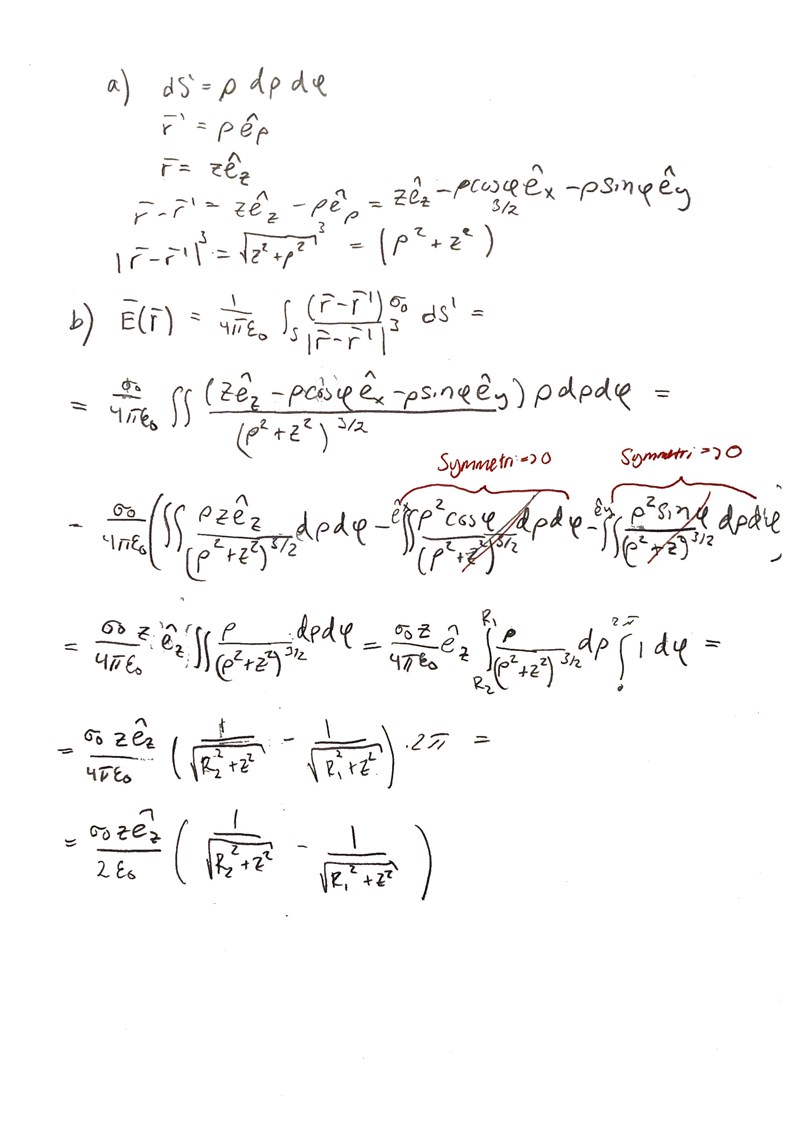 a) dS' = ρ dρ dφ
r̄' = ρ ê_ρ
r̄ = z ê_z
r̄ - r̄' = z ê_z - ρ ê_ρ = z ê_z - ρcosφ ê_x - ρsinφ ê_y
|r̄ - r̄'|³ = √(z² + ρ²)³ = (ρ² + z²)^(3/2)
b) Ē(r̄) = 1/(4πε₀) ∫_S (r̄ - r̄')σ₀/|r̄ - r̄'|³ dS' =
= σ₀/(4πε₀) ∬ (z ê_z - ρcosφ ê_x - ρsinφ ê_y)/(ρ² + z²)^(3/2) ρ dρ dφ =
Symmetri => 0 Symmetri => 0
- σ₀/(4πε₀) (∬ ρz ê_z/(ρ² + z²)^(3/2) dρdφ - ê_x ∬ ρ²cosφ/(ρ² + z²)^(3/2) dρdφ - ê_y ∬ ρ²sinφ/(ρ² + z²)^(3/2) dρdφ)
= σ₀ z/(4πε₀) ê_z ∬ ρ/(ρ² + z²)^(3/2) dρdφ = σ₀z/(4πε₀) ê_z ∫_{R₂}^{R₁} ρ/(ρ² + z²)^(3/2) dρ ∫_0^{2π} 1 dφ =
= σ₀ z ê_z/(4πε₀) (1/√(R₂² + z²) - 1/√(R₁² + z²)) · 2π =
= σ₀ z ê_z/(2ε₀) (1/√(R₂² + z²) - 1/√(R₁² + z²))